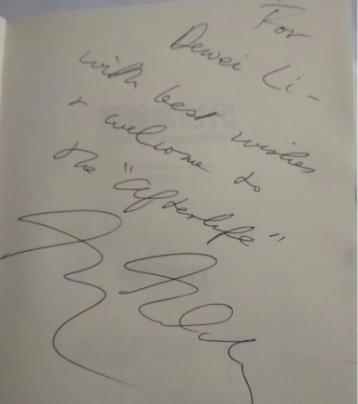 For
Dewei Li -
with best wishes
& welcome to
the "Afterlife"